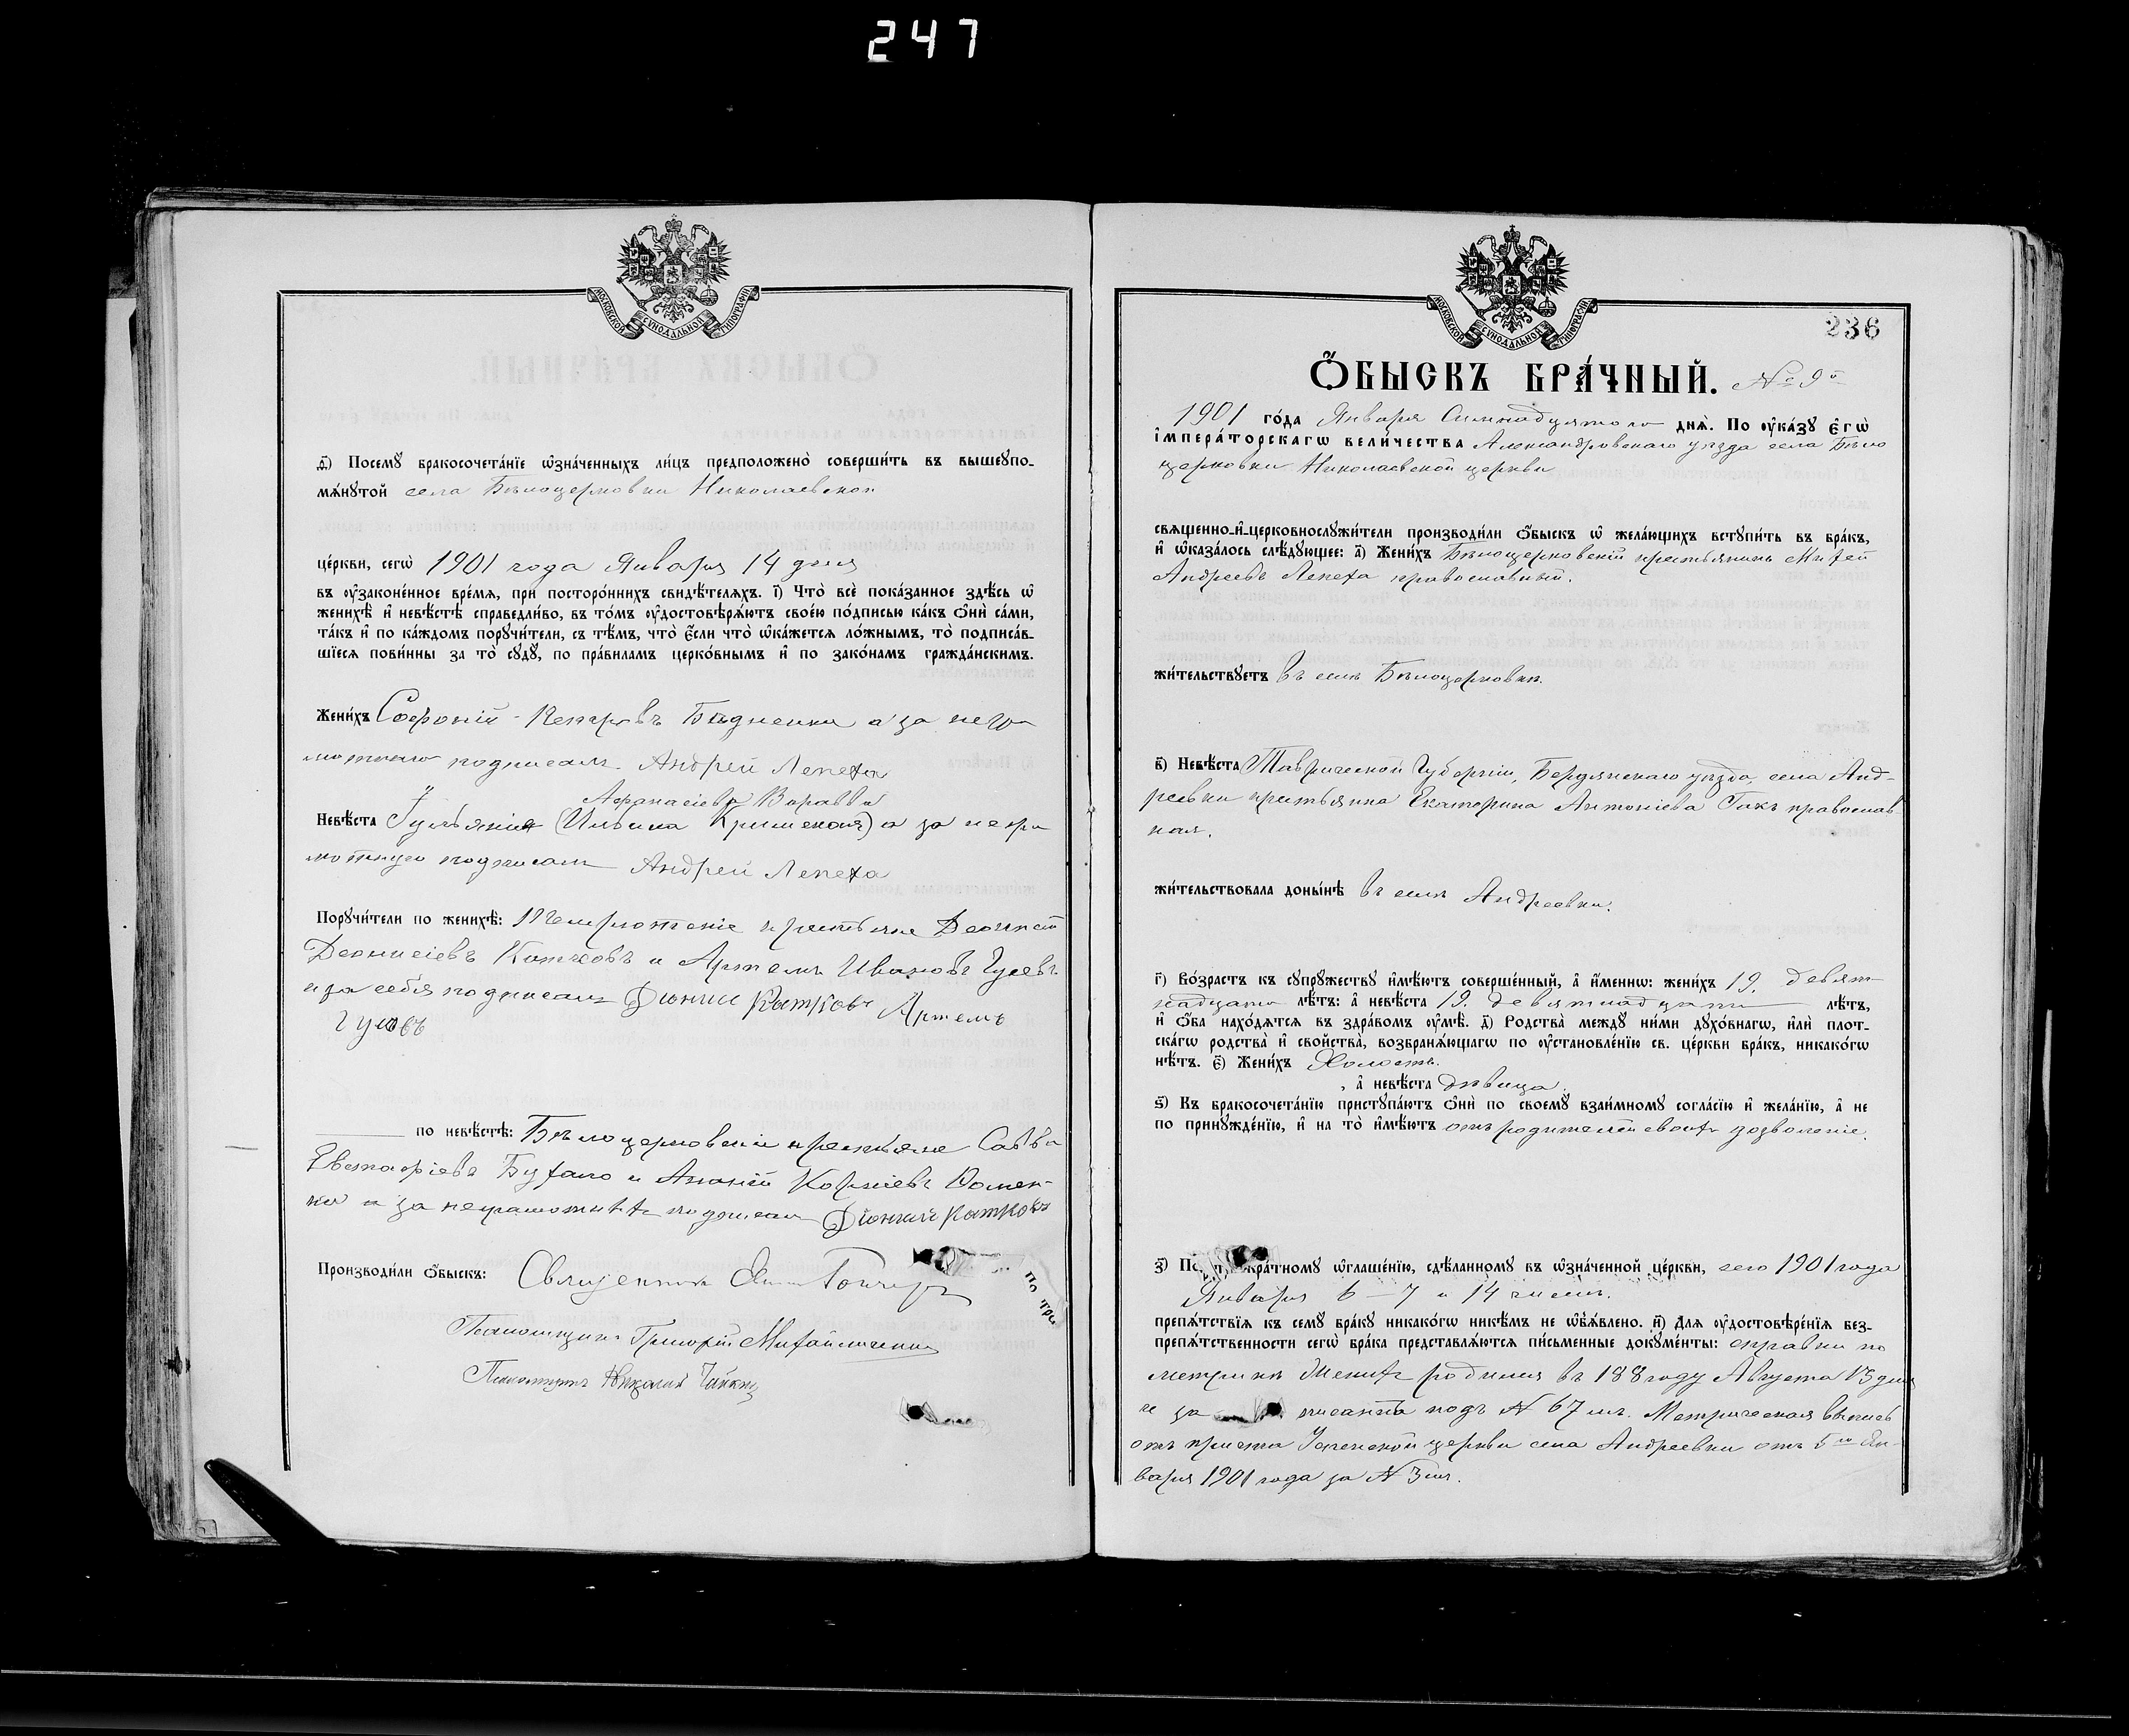 247
МОСКОВСКОЙ СѴНОДАЛЬНОЙ ТИПОГРАФІИ
ѳ҃) Посемꙋ̀ бракосочета́нїе ѡ҆зна́ченныхъ ли́цъ предположено̀ соверши́ть въ вышеꙋпо-
мѧ́нꙋтой села Бѣлоцерковки Николаевской
це́ркви, сегѡ̀ 1901 года Января 14 дня
въ ᲂу҆зако́ненное вре́мѧ, при посторо́ннихъ свидѣ́телѧхъ. і҃) Что̀ всѐ пока́занное здѣ́сь ѡ҆
женихѣ̀ и҆ невѣ́стѣ справедли́во, въ то́мъ ᲂу҆достовѣрѧ́ютъ свое́ю по́дписью ка́къ ѻ҆нѝ са́ми,
та́къ и҆ по ка́ждомъ порꙋчи́тели, съ тѣ́мъ, что̀ є҆́сли что̀ ѡ҆ка́жется ло́жнымъ, то̀ подписа́в-
шїеся пови́нны за то̀ сꙋдꙋ̀, по пра́виламъ церко́внымъ и҆ по зако́намъ гражда́нскимъ.
Жени́хъ Софоній Петровъ Бѣдненко а за негра
мотнаго подписалъ Андрей Лепеха
Афанасіева Варавва
Невѣ́ста Гульянія (Ильина Кришеная) а за негра
мотную подписалъ Андрей Лепеха
Порꙋчи́тели по женихѣ̀: крестьяне Деонисій
Деонисіевъ Катковъ и Артемъ Ивановъ Гусевъ
и за себя подписали Діонисій Катковъ Артемъ
Гусевъ
по невѣ́стѣ: Бѣлоцерковскіи крестьяне Савва
Евстафіевъ Бухало и Ананій Корніевъ Фомен-
ко а за неграмотныхъ подписалъ Діонисій Катковъ
Производи́ли ѻ҆́быскъ: Священникъ
Псаломщикъ Григорій Михайличенко
Псаломщикъ Николай
по тре
МОСКОВСКОЙ СѴНОДАЛЬНОЙ ТИПОГРАФІИ
236
Ѻ҆́БЫСКЪ БРА́ЧНЫЙ. № 9й
1901 го́да Января Семнадцятого днѧ̀. По ᲂу҆ка́зꙋ Є҆гѡ̀
І҆мпера́торскагѡ вели́чества Александровскаго уѣзда села Бѣло
церковки Николаевской церкви
свѧще́нно-и҆-церковнослꙋжи́тели производи́ли ѻ҆́быскъ ѡ҆ жела́ющихъ встꙋпи́ть въ бра́къ,
и҆ ѡ҆каза́лось слѣ́дꙋющее: а҃) Жени́хъ Бѣлоцерковскій крестьянинъ Михей
Андреевъ Лепеха православный.
жи́тельствꙋетъ въ селѣ Бѣлоцерковкѣ.
в҃) Невѣ́ста Таврической Губерніи, Бердянскаго уѣзда села Анд-
реевки крестьянка Екатерина Антоніева Гакъ православ
ная.
жи́тельствовала доны́нѣ въ селѣ Андреевки.
г҃) Во́зрастъ къ сꙋпрꙋ́жествꙋ и҆мѣ́ютъ соверше́нный, а҆ и҆́меннѡ: жени́хъ 19. девят
надцати лѣ́тъ: а҆ невѣ́ста 19. девятнадцати лѣ́тъ,
и҆ ѻ҆́ба нахо́дѧтсѧ въ здра́вомъ ᲂу҆мѣ̀. д҃) Родства̀ междꙋ̀ ни́ми дꙋхо́внагѡ, и҆лѝ плот-
ска́гѡ родства̀ и҆ сво́йства̀, возбранѧ́ющагѡ по ᲂу҆становле́нїю св. це́ркви бра́къ, никако́гѡ
нѣ́тъ. є҃) Жени́хъ Холостъ.
а҆ невѣ́ста дѣвица.
ѕ҃) Къ бракосочета́нїю пристꙋпа́ютъ ѻ҆нѝ по своемꙋ̀ взаи́мномꙋ согла́сїю и҆ жела́нїю, а҆ не
по принꙋжде́нїю, и҆ на то̀ и҆мѣ́ютъ отъ родителей своихъ дозволеніе.
з҃) По кра́тномꙋ ѡ҆глаше́нїю, сдѣ́ланномꙋ въ ѡ҆зна́ченной це́ркви, сего 1901 года
Января 6 – 7 и 14 числъ.
препѧ́тствїѧ къ семꙋ̀ бра́кꙋ никако́гѡ никѣ́мъ не ѡ҆б̾ѧ́влено. и҃) Для ᲂу҆достовѣре́нїѧ без-
препѧ́тственности сегѡ̀ бра́ка представлѧ́ются пи́сьменные докꙋме́нты: справки по
метрикѣ Женихъ родился въ 188 году Августа 13 дня
за писанъ подъ № 67мъ. Метрическая выпись
отъ причта Успенской церкви села Андреевки отъ 5го Ян-
варя 1901 года за № 3мъ.